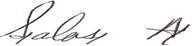 Salas A